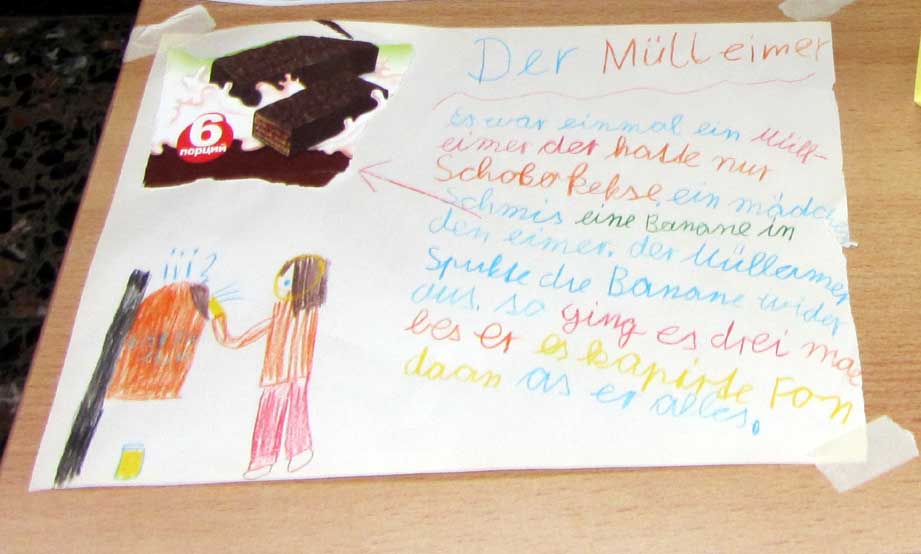 6
порций
Der Mülleimer
Es war einmal ein Müll-
eimer der hatte nur
Schokokekse, ein mädchen
Schmis eine Banane in
den eimer. der Mülleimer
Spukte die Banane wider
aus. so ging es drei mal
bes er es kapirte Fon
daan as er alles.